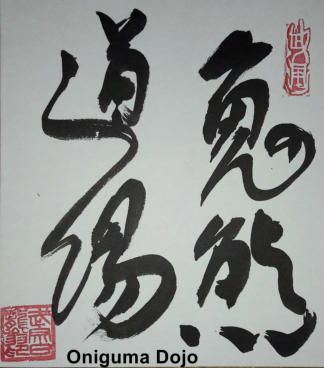 鬼熊
道場
Oniguma Dojo